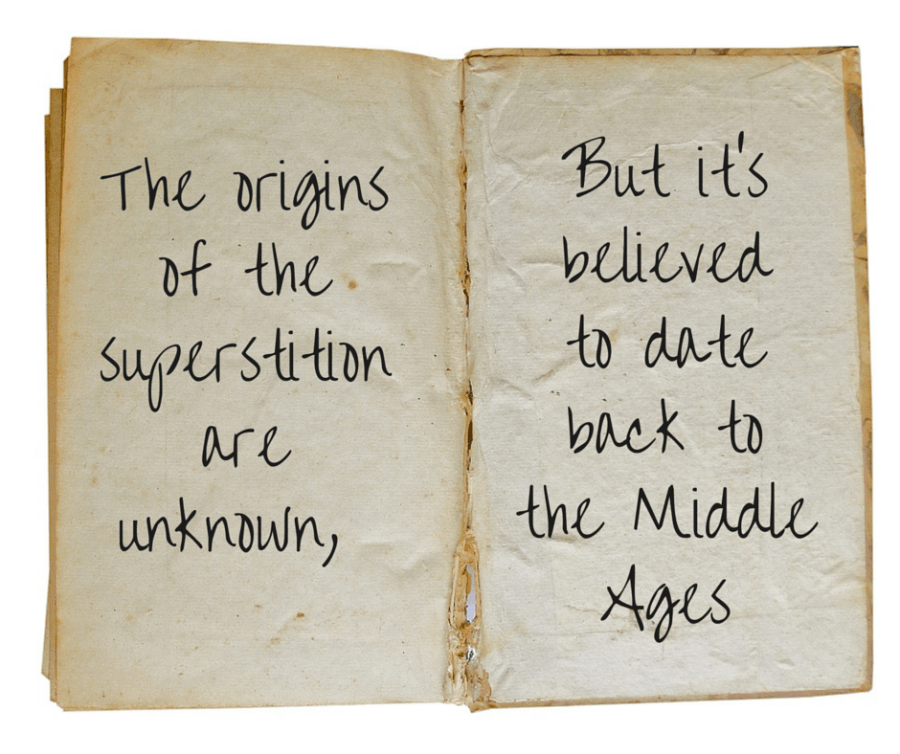 The origins
of the
superstition
are
unknown,
But it's
believed
to date
back to
the Middle
Ages